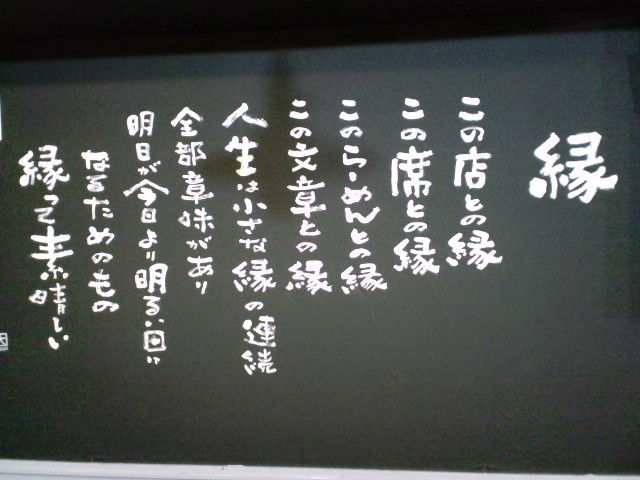 縁
この店との縁
この席との縁
このらーめんとの縁
この文章との縁
人生は小さな縁の連続
全部意味があり
明日が今日より明るい日に
なるためのもの
縁って素晴しい